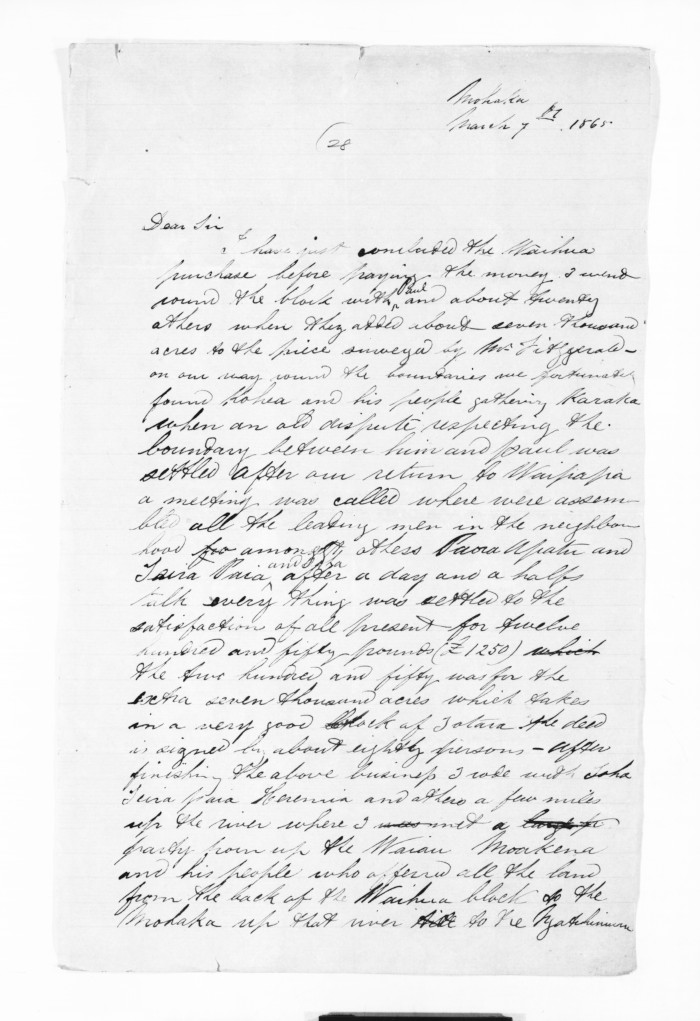 Mohaka
March 7th 1865
(28
Dear Sir
I have just concluded the Waihua
purchase before paying the money I went
round the block with Paul and about twenty
others when they added about seven thousand
acres to the piece surveyed by Mr Fitzgerald –
on our way round the boundaries we fortunately
found Kohea and his people gathering Karaka
when an old dispute respecting the
boundary between him and Paul was
settled after our return to Waipapa
a meeting was called where were assem-
bled all the leading men in the neighbour
hood amongst others Paora Apatu and
Teira Paia and after a day and a halfs
talk every thing was settled to the
satisfaction of all present for twelve
hundred and fifty pounds (£1250) which
the two hundred and fifty was for the
extra seven thousand acres which takes
in a very good block of Totara the deed
is signed by about eighty persons – after
finishing the above business I rode with Toha
Teira Paia Heremia and others a few miles
up the river where I was met a large
party from up the Waiau Moakena
and his people who offered all the land
from the back of the Waihua block to the
Mohaka up that river to the